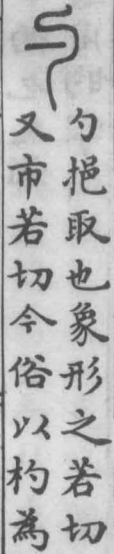 勺挹取也象形之若切
又市若切今俗以杓為